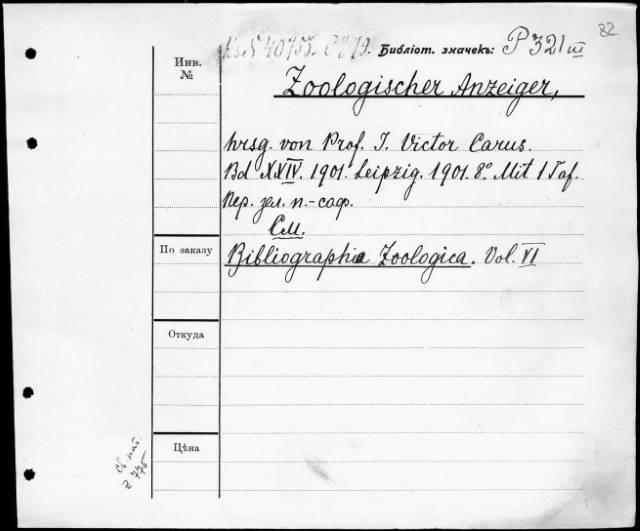 82
Библіот. значекъ: P 321 III
Инв. №
Zoologischer Anzeiger,
hrsg. von Prof. J. Victor Carus.
Bd XXIV. 1901. Leipzig. 1901. 8° Mit 1 Taf.
Пер. зел. п.-саф.
См.
По заказу
Bibliographia Zoologica. Vol. VI
Откуда
Цѣна